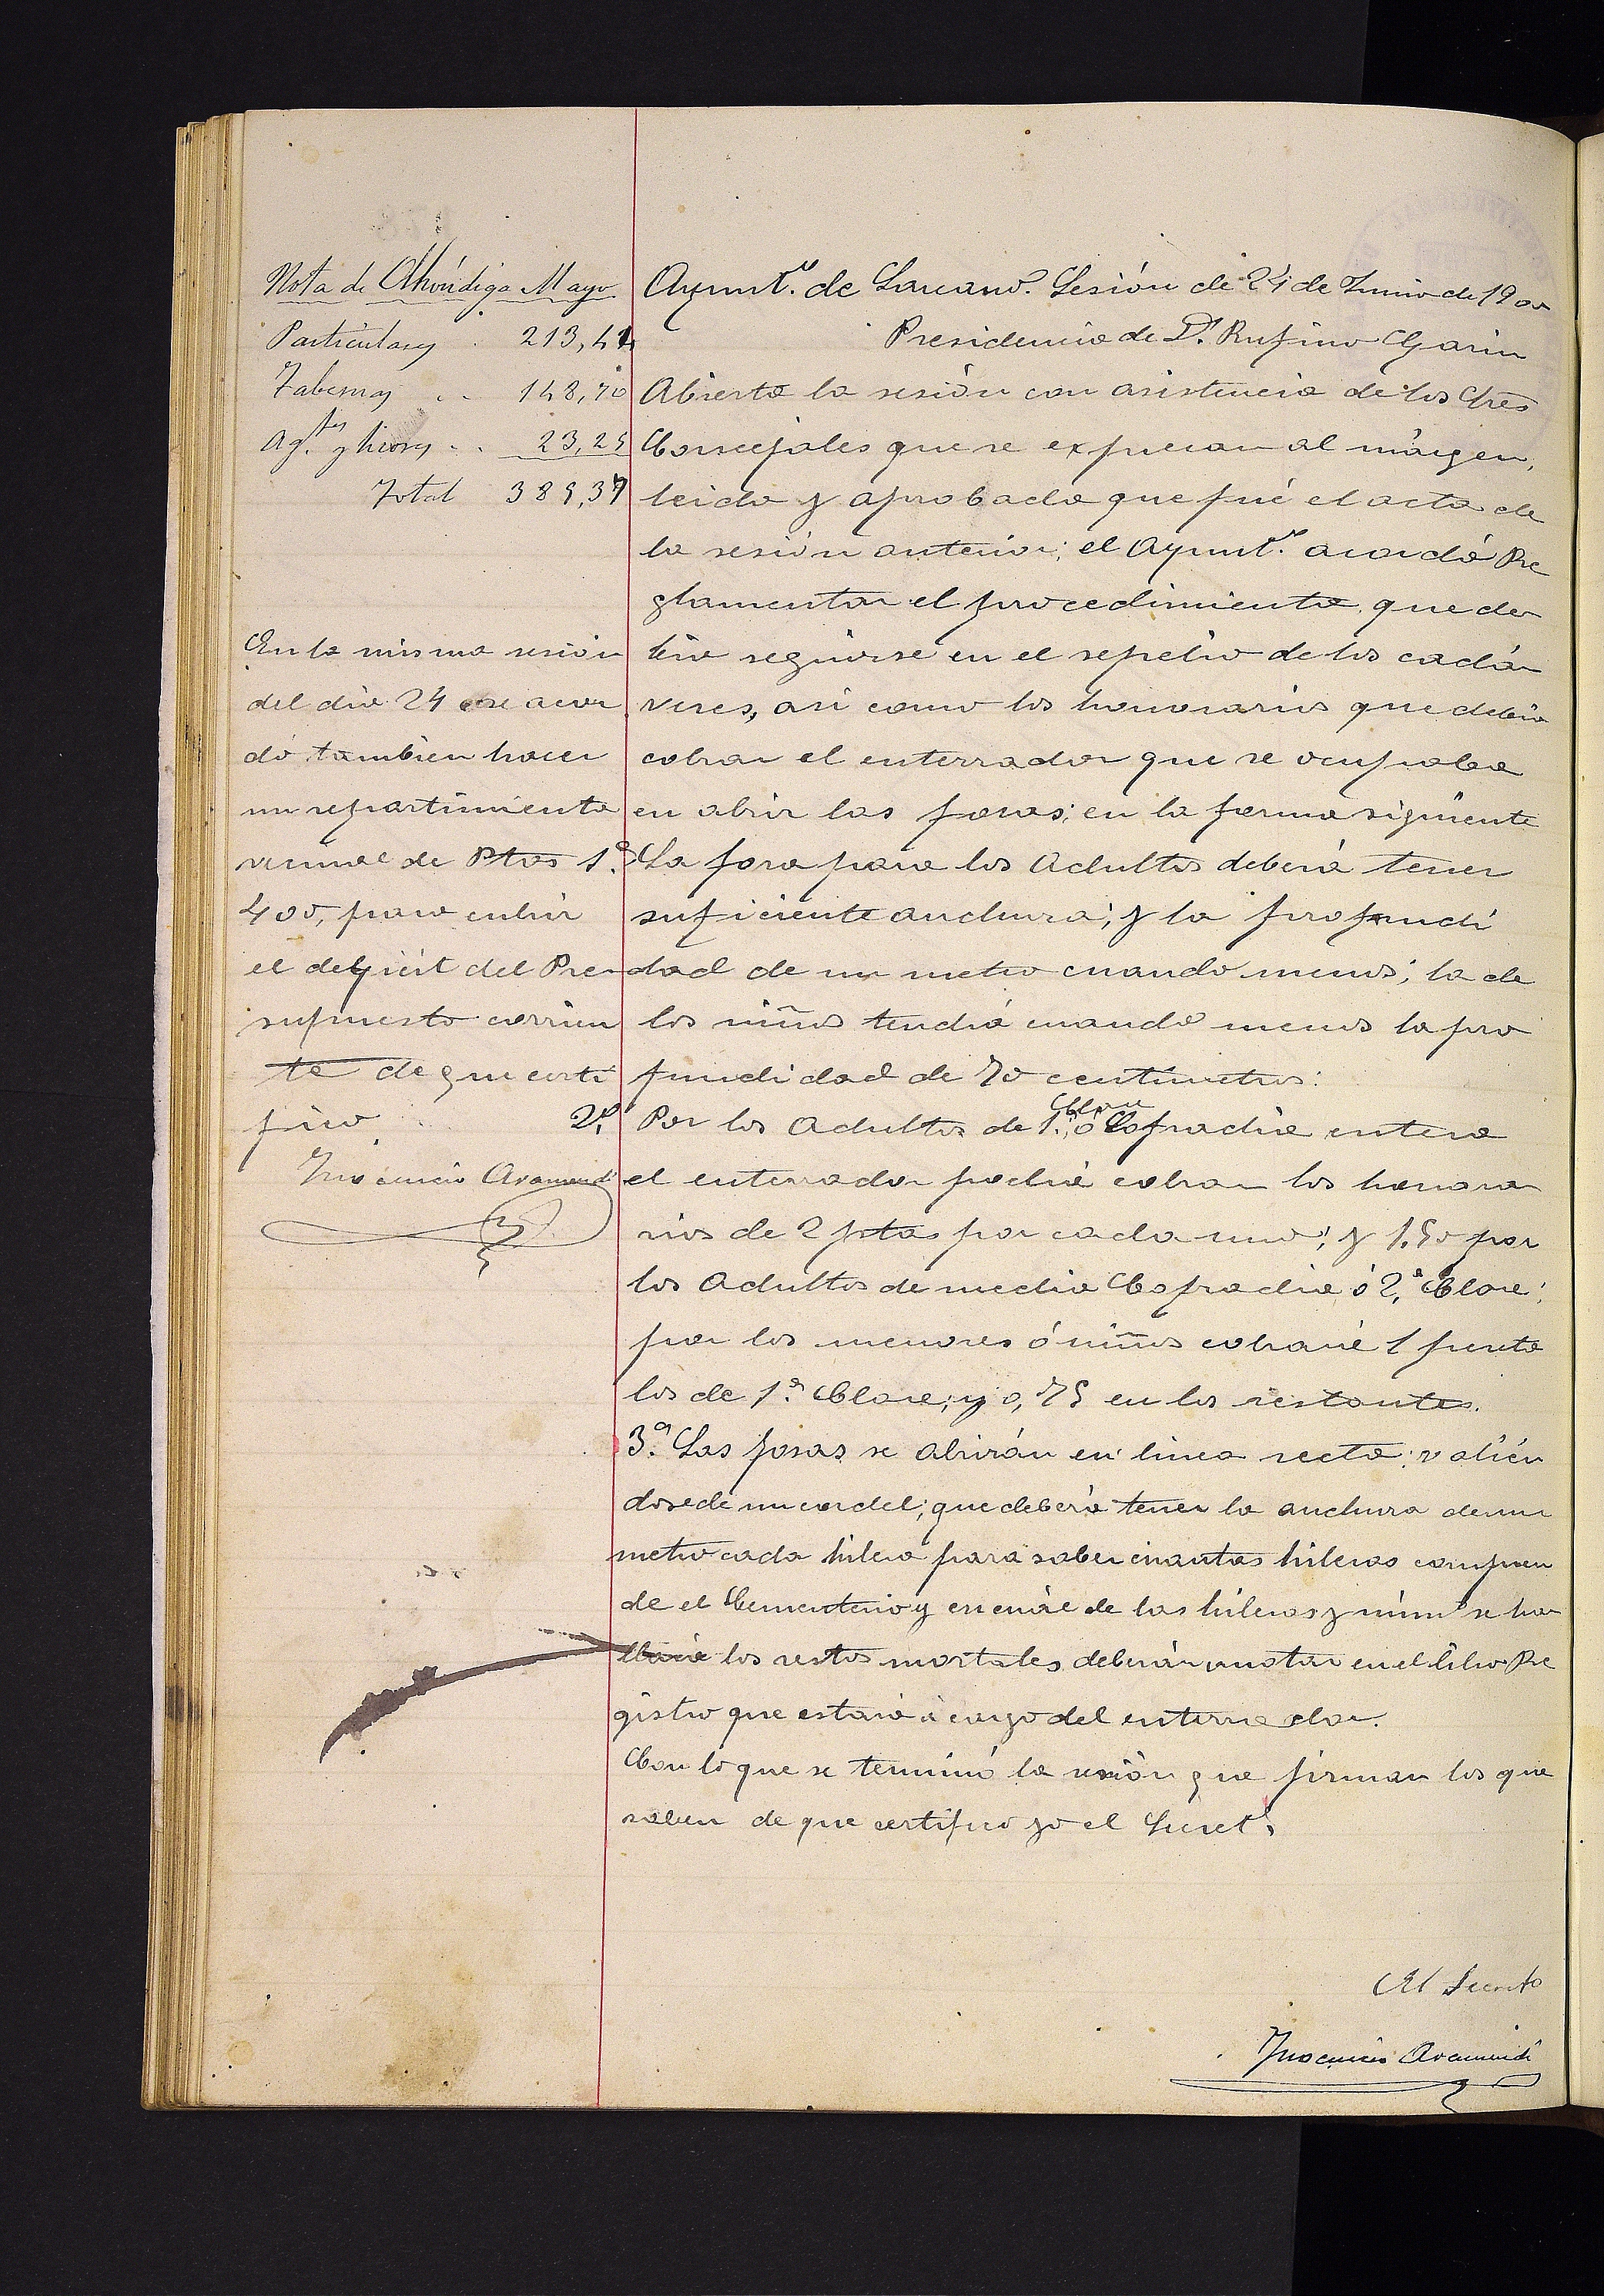 Nota de Alhóndiga Mayo
Particulares . 213,42
Tabernas . . 148,70
Ag.tes y licores . . 23,25
Total 385,37
En la misma sesión
del dia 24 se acor
dó tambien hacer
un repartimiento
vecinal de Ptas
400, para cubrir
el deficit del Pre
supuesto corrien
te de que certi
fico
Inocencio Aramendi
Ayunt.º de Lazcano. Sesión de 24 de Junio de 1900
Presidencia de Dn. Rufino Garin
Abierta la sesión con asistencia de los Sres
Concejales que se expresan al márgen,
leida y aprobada que fué el acta de
la sesión anterior; el Ayunt.º acordó Re
glamentar el procedimiento que de
bia seguirse en el sepelio de los cadá
veres, asi como los honorarios que debia
cobrar el enterrador que se ocupaba
en abrir las fosas; en la forma siguiente
1.ª La fosa para los Adultos deberá tener
suficiente anchura; y la profundi
dad de un metro cuando menos; la de
los niños tendrá cuando menos la pro
fundidad de 70 centimetros:
2.ª Por los Adultos de 1.ª Clase ó Cofradia entera
el enterrador podrá cobrar los honora
rios de 2 ptas por cada uno; y 1,50 por
los Adultos de media Cofradia ó 2.ª Clase;
por los menores ó niños cobrará 1 peseta
los de 1.ª Clase; y 0,75 en los restantes.
3.ª Las fosas se abrirán en linea recta; valién
dose de un cordel; que deberá tener la anchura de un
metro cada hilera para saber cuantas hileras compren
de el Cementerio y en cuál de las hileras y núm.º se ha
llará los restos mortales deberán anotar en el libro Re
gistro que estará á cargo del enterrador.
Con lo que se terminó la sesión que firman los que
saben de que certifico yo el Secret.º
El Secreto
Inocencio Aramendi